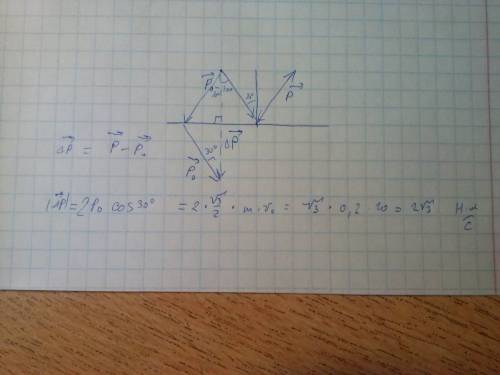 P₀ 30° 30° 30° P
ΔP = P - P₀
30° ΔP
P₀
|ΔP| = 2P₀ cos 30° = 2 · √3/2 · m · v₀ = √3 · 0,2 · 10 = 2√3 Н·с